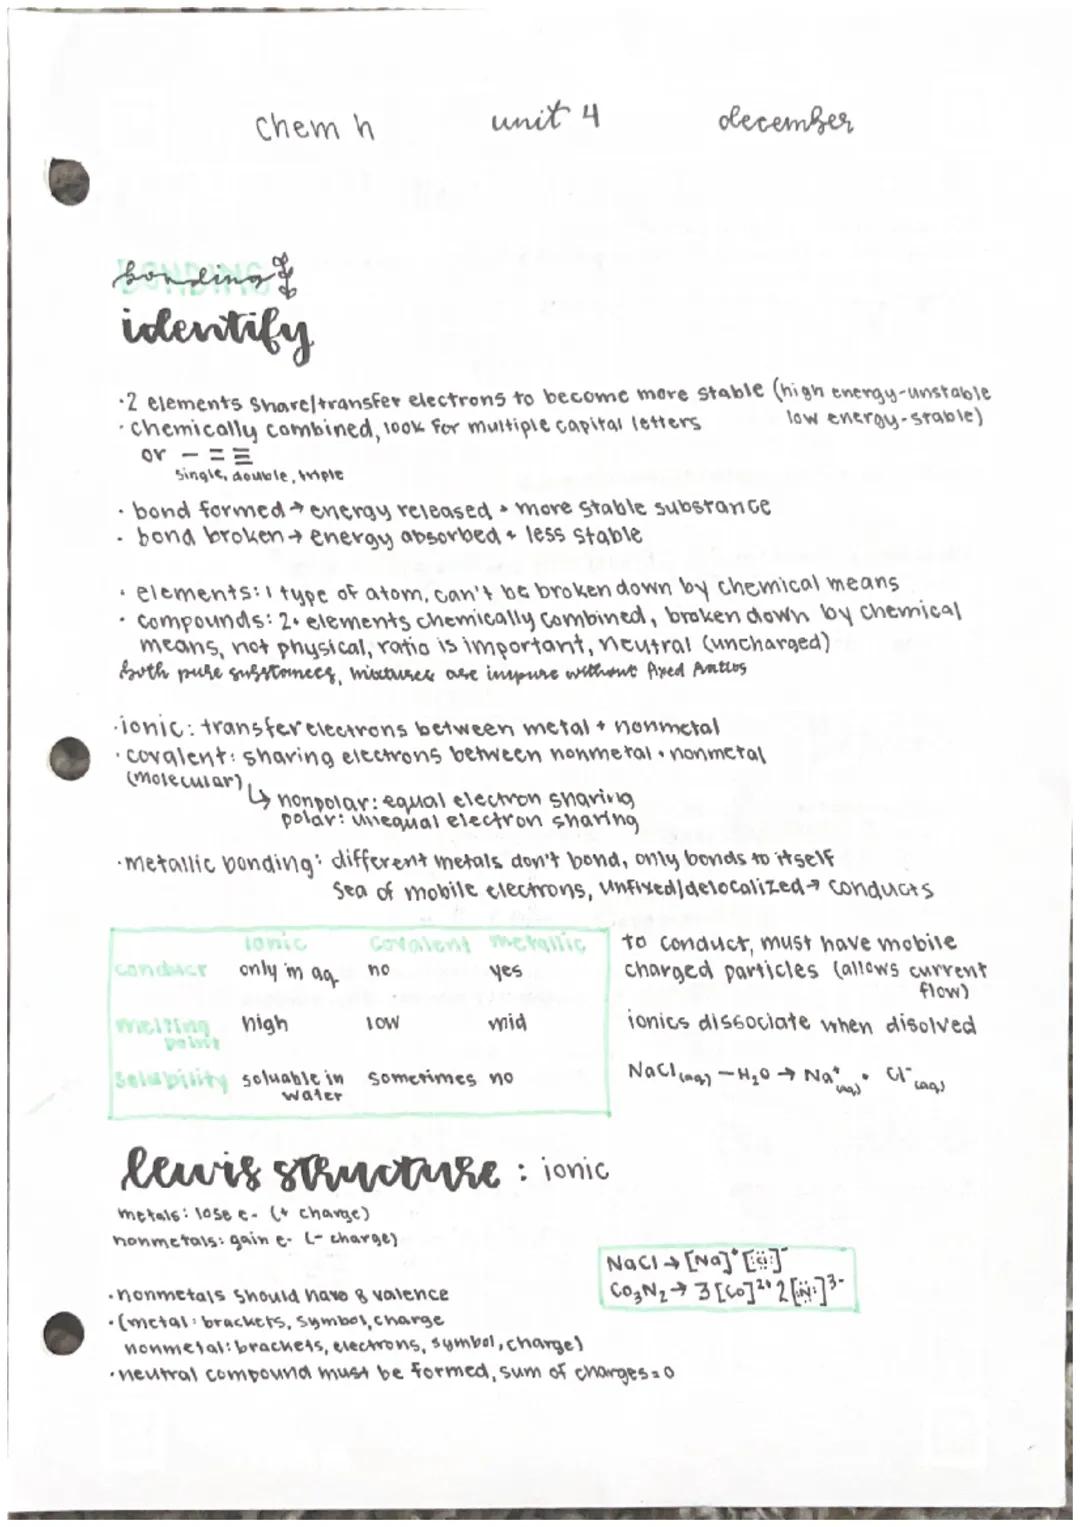 chem h unit 4 december
bonding
identify
·2 elements share/transfer electrons to become more stable (high energy-unstable
low energy-stable)
·chemically combined, look for multiple capital letters
or — = ≡
single, double, triple
· bond formed → energy released + more stable substance
· bond broken → energy absorbed + less stable
· elements: 1 type of atom, can't be broken down by chemical means
· compounds: 2+ elements chemically combined, broken down by chemical
means, not physical, ratio is important, neutral (uncharged)
both pure substances, mixtures are impure without fixed ratios
·ionic: transfer electrons between metal + nonmetal
·covalent: sharing electrons between nonmetal + nonmetal
(molecular)
↳ nonpolar: equal electron sharing
polar: unequal electron sharing
·metallic bonding: different metals don't bond, only bonds to itself
sea of mobile electrons, unfixed/delocalized → conducts
ionic covalent metallic
conduct only in aq no yes
melting point high low mid
solubility soluable in water sometimes no
to conduct, must have mobile
charged particles (allows current
flow)
ionics dissociate when disolved
NaCl(aq) —H₂O → Na⁺(aq) + Cl⁻(aq)
lewis structure : ionic
metals: lose e- (+ charge)
nonmetals: gain e- (- charge)
NaCl → [Na]⁺ [:C̈l̤:]⁻
Co₃N₂ → 3[Co]²⁺ 2[:N̤̈:]³⁻
·nonmetals should have 8 valence
·(metal: brackets, symbol, charge
nonmetal: brackets, electrons, symbol, charge)
·neutral compound must be formed, sum of charges = 0